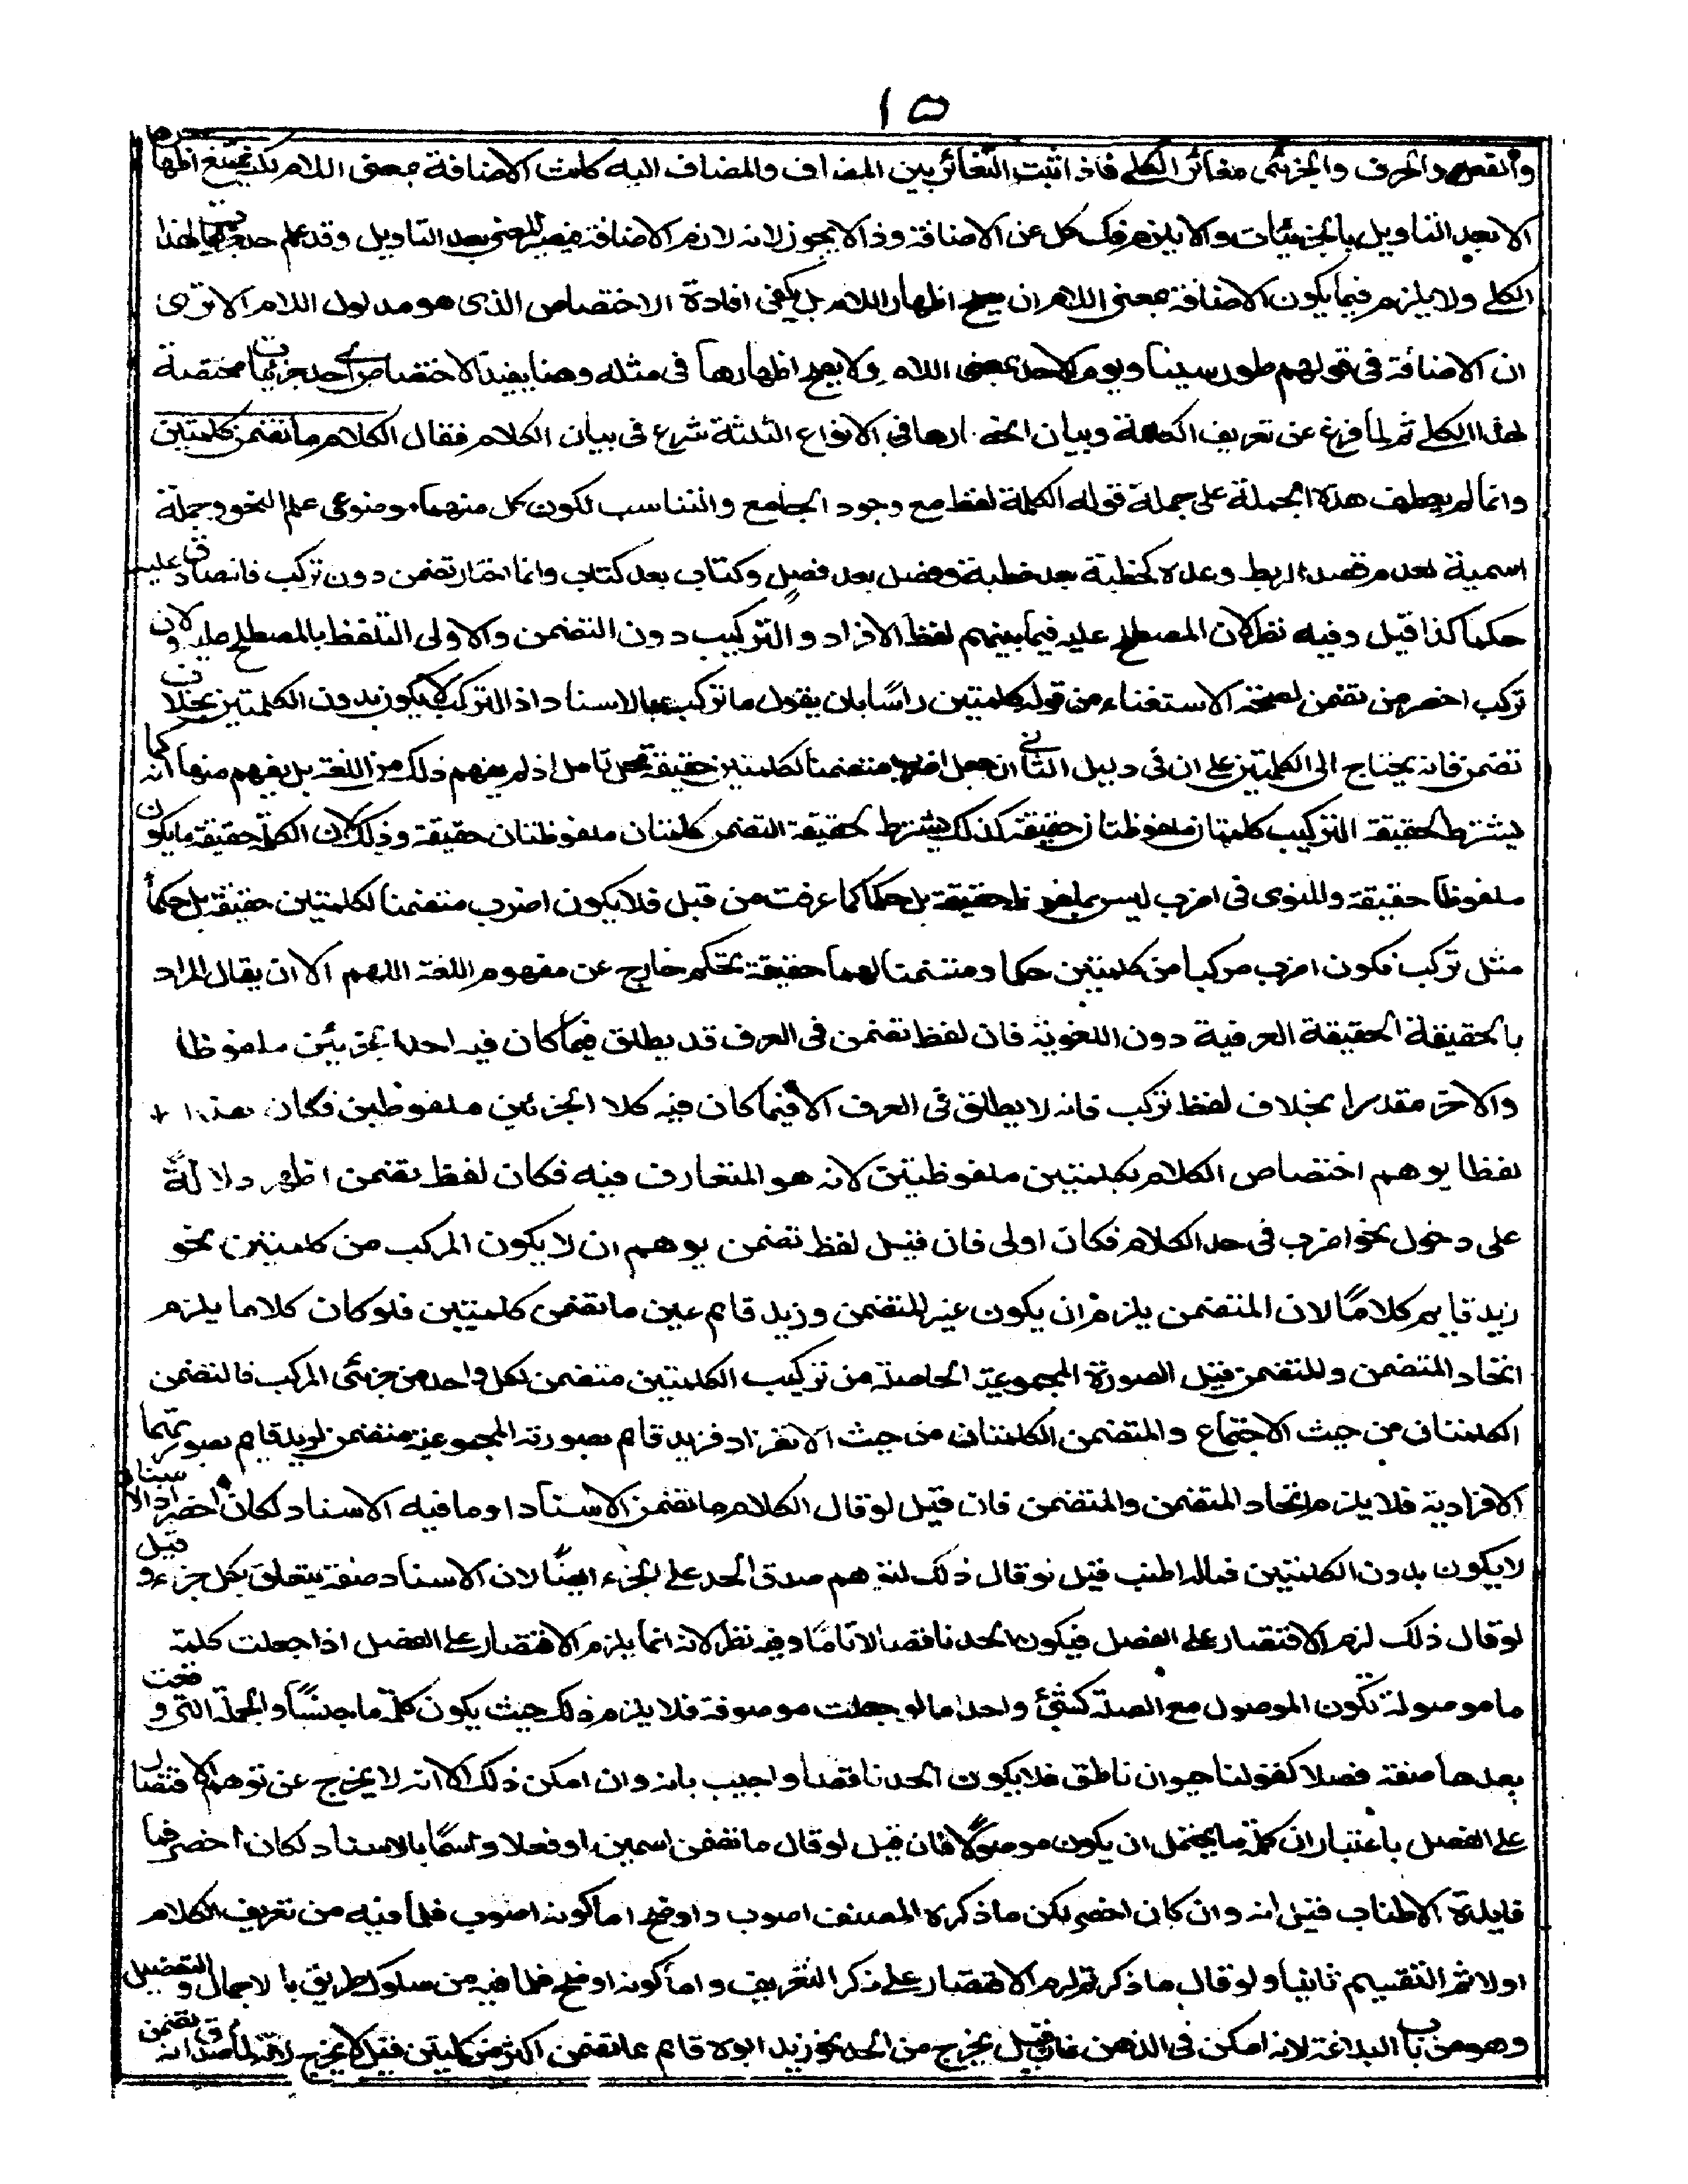 ١٥
والفعل والحرف والجزئى مغائر الكلى فاذا ثبت التغائر بين المضاف والمضاف اليه كانت الاضافة بمعنى اللام لكن يمتنع اظهارها
الا بعد التاويل بالجزئيات والا يلزم فك كل عن الاضافة وذا لا يجوز لانه لازم الاضافة فيصير المعنى بعد التاويل وقد علم حد جزئيات لهذا
الكلى ولا يلزم فيما يكون الاضافة بمعنى اللام ان يصح اظهار اللام بل يكفى افادة الاختصاص الذى هو مدلول اللام الا ترى
ان الاضافة فى قولهم طور سينا ويوم الاحد بمعنى اللام ولا يصح اظهارها فى مثله وهنا يفيد الاختصاص اى احد جزئياتها مختصة
لهذا الكلى ثم لما فرغ عن تعريف الكلمة وبيان انحصارها فى الانواع الثلثة شرع فى بيان الكلام فقال الكلام ما تضمن كلمتين
وانما لم يعطف هذه الجملة على جملة قوله الكلمة لفظ مع وجود الجامع والتناسب لكون كل منهما موضوعى علم النحو وجملة
اسمية لعدم قصد الربط وعده كخطبة بعد خطبة وفصل بعد فصل وكتاب بعد كتاب وانما اختار تضمن دون تركب فانه صادق عليه
حكما كذا قيل وفيه نظر لان المصطلح عليه فيما بينهم لفظ الافراد والتركيب دون التضمن والاولى التلفظ بالمصطلح عليه ولان
تركب اخصر من تضمن لصحة الاستغناء من قوله كلمتين راسًا بان يقول ما تركب بالاسناد اذ التركب لا يكون بدون الكلمتين بخلاف
تضمن فانه يحتاج الى الكلمتين على ان فى دليل الثانى ان جعل اضرب متضمنا لكلمتين حقيقة محل تامل اذ لم يفهم ذلك من اللغة بل يفهم منها انه كما
يشترط لحقيقة التركيب كلمتان ملفوظتان حقيقة كذلك يشترط لحقيقة التضمن كلمتان ملفوظتان حقيقة وذلك لان الكلمة حقيقة ما يكون
ملفوظا حقيقة والمنوى فى اضرب ليس بملفوظ حقيقة بل حكما كما عرفت من قبل فلا يكون اضرب متضمنا لكلمتين حقيقة بل حكماً
مثل تركب فكون اضرب مركبا من كلمتين حكما ومتضمنا لهما حقيقة تحكم خارج عن مفهوم اللغة اللهم الا ان يقال المراد
بالحقيقة الحقيقة العرفية دون اللغوية فان لفظ تضمن فى العرف قد يطلق فيما كان فيه احد الجزئين ملفوظا
والاخر مقدرا بخلاف لفظ تركب فانه لا يطلق فى العرف الا فيما كان فيه كلا الجزئين ملفوظين فكان هذا
لفظا يوهم اختصاص الكلام بكلمتين ملفوظتين لانه هو المتعارف فيه فكان لفظ تضمن اظهر دلالة
على دخول نحو اضرب فى حد الكلام فكان اولى فان قيل لفظ تضمن يوهم ان لا يكون المركب من كلمتين نحو
زيد قايم كلامًا لان المتضمن يلزم ان يكون غير المتضمن وزيد قايم عين ما تضمن كلمتين فلو كان كلاما يلزم
اتحاد المتضمن والمتضمن قيل الصورة المجموعية الحاصلة من تركيب الكلمتين متضمن لكل واحد من جزئى المركب فالمتضمن
الكلمتان من حيث الاجتماع والمتضمن الكلمتان من حيث الانفراد فزيد قايم بصورته المجموعية متضمن لزيد قايم بصورتهما
الافرادية فلا يلزم اتحاد المتضمن والمتضمن فان قيل لو قال الكلام ما تضمن الاسناد او ما فيه الاسناد لكان اخصر اذ الاسناد
لا يكون بدون الكلمتين فماله اطنب قيل لو قال ذلك لتوهم صدق الحد على الجزء ايضًا لان الاسناد صفة يتعلق بكل جزء وقيل
لو قال ذلك لزم الاقتصار على الفصل فيكون الحد ناقصا لا تامًا وفيه نظر لانه انما يلزم الاقتصار على الفصل اذا جعلت كلمة
ما موصولة تكون الموصول مع الصلة كشئ واحد اما لو جعلت موصوفة فلا يلزم ذلك حيث يكون كلمة ما جنسًا والجملة التى وقعت
بعدها صفة فصلا كقولنا حيوان ناطق فلا يكون الحد ناقصا واجيب بانه وان امكن ذلك الا انه لا يخرج عن توهم الاقتصار
على الفصل باعتبار ان كلمة ما يحتمل ان يكون موصولا فان قيل لو قال ما تضمن اسمين او فعلا واسمًا بالاسناد لكان اخصر فما
فايدة الاطناب قيل انه وان كان اخصر لكن ما ذكره المصنف اصوب واوضح اما كونه اصوب فلما فيه من تعريف الكلام
اولا ثم التقسيم ثانيا ولو قال ما ذكرتم لزم الاقتصار على ذكر التعريف واما كونه اوضح فلما فيه من سلوك طريق بالاجمال والتفصيل
وهو من باب البلاغة لانه امكن فى الذهن فان قيل يخرج من الحد نحو زيد ابوه قايم مما تضمن اكثر من كلمتين قيل لا يخرج لانه لما صدق انه تضمن